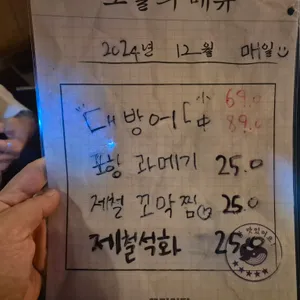 오늘의 메뉴
2024년 12월 매일
"대방어" 小 69.0
中 89.0
포항 과메기 25.0
제철 꼬막찜 25.0
제철석화 25.0